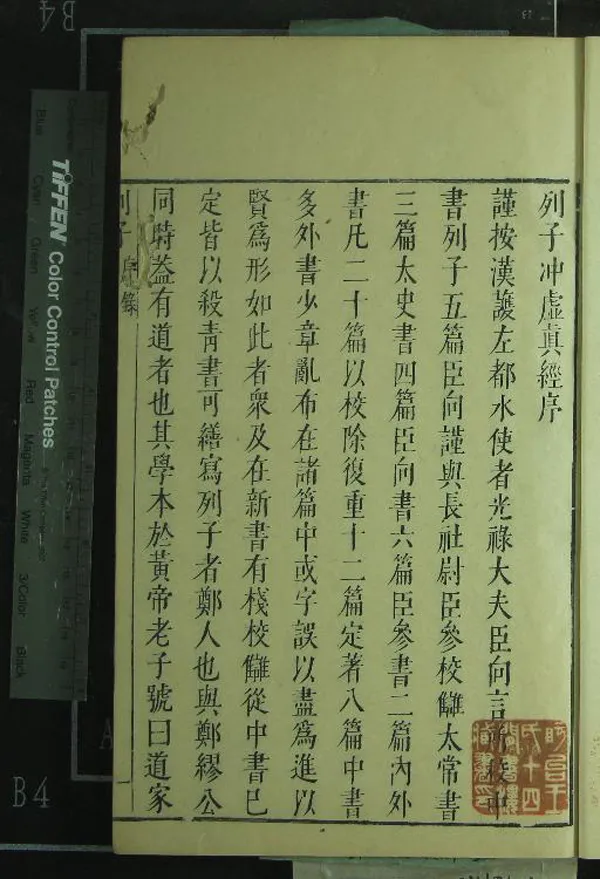 列子冲虛真經序
謹按漢護左都水使者光祿大夫臣向言所校中
書列子五篇臣向謹與長社尉臣參校讎太常書
三篇太史書四篇臣向書六篇臣參書二篇內外
書凡二十篇以校除復重十二篇定著八篇中書
多外書少章亂布在諸篇中或字誤以盡為進以
賢為形如此者衆及在新書有棧校讎從中書已
定皆以殺青書可繕寫列子者鄭人也與鄭繆公
同時蓋有道者也其學本於黃帝老子號曰道家
列子 序錄
一
氏十四
B4
B4
TIFFEN Color Control Patches
Blue
Cyan
Green
Yellow
Red
Magenta
White
3/Color
Black
A